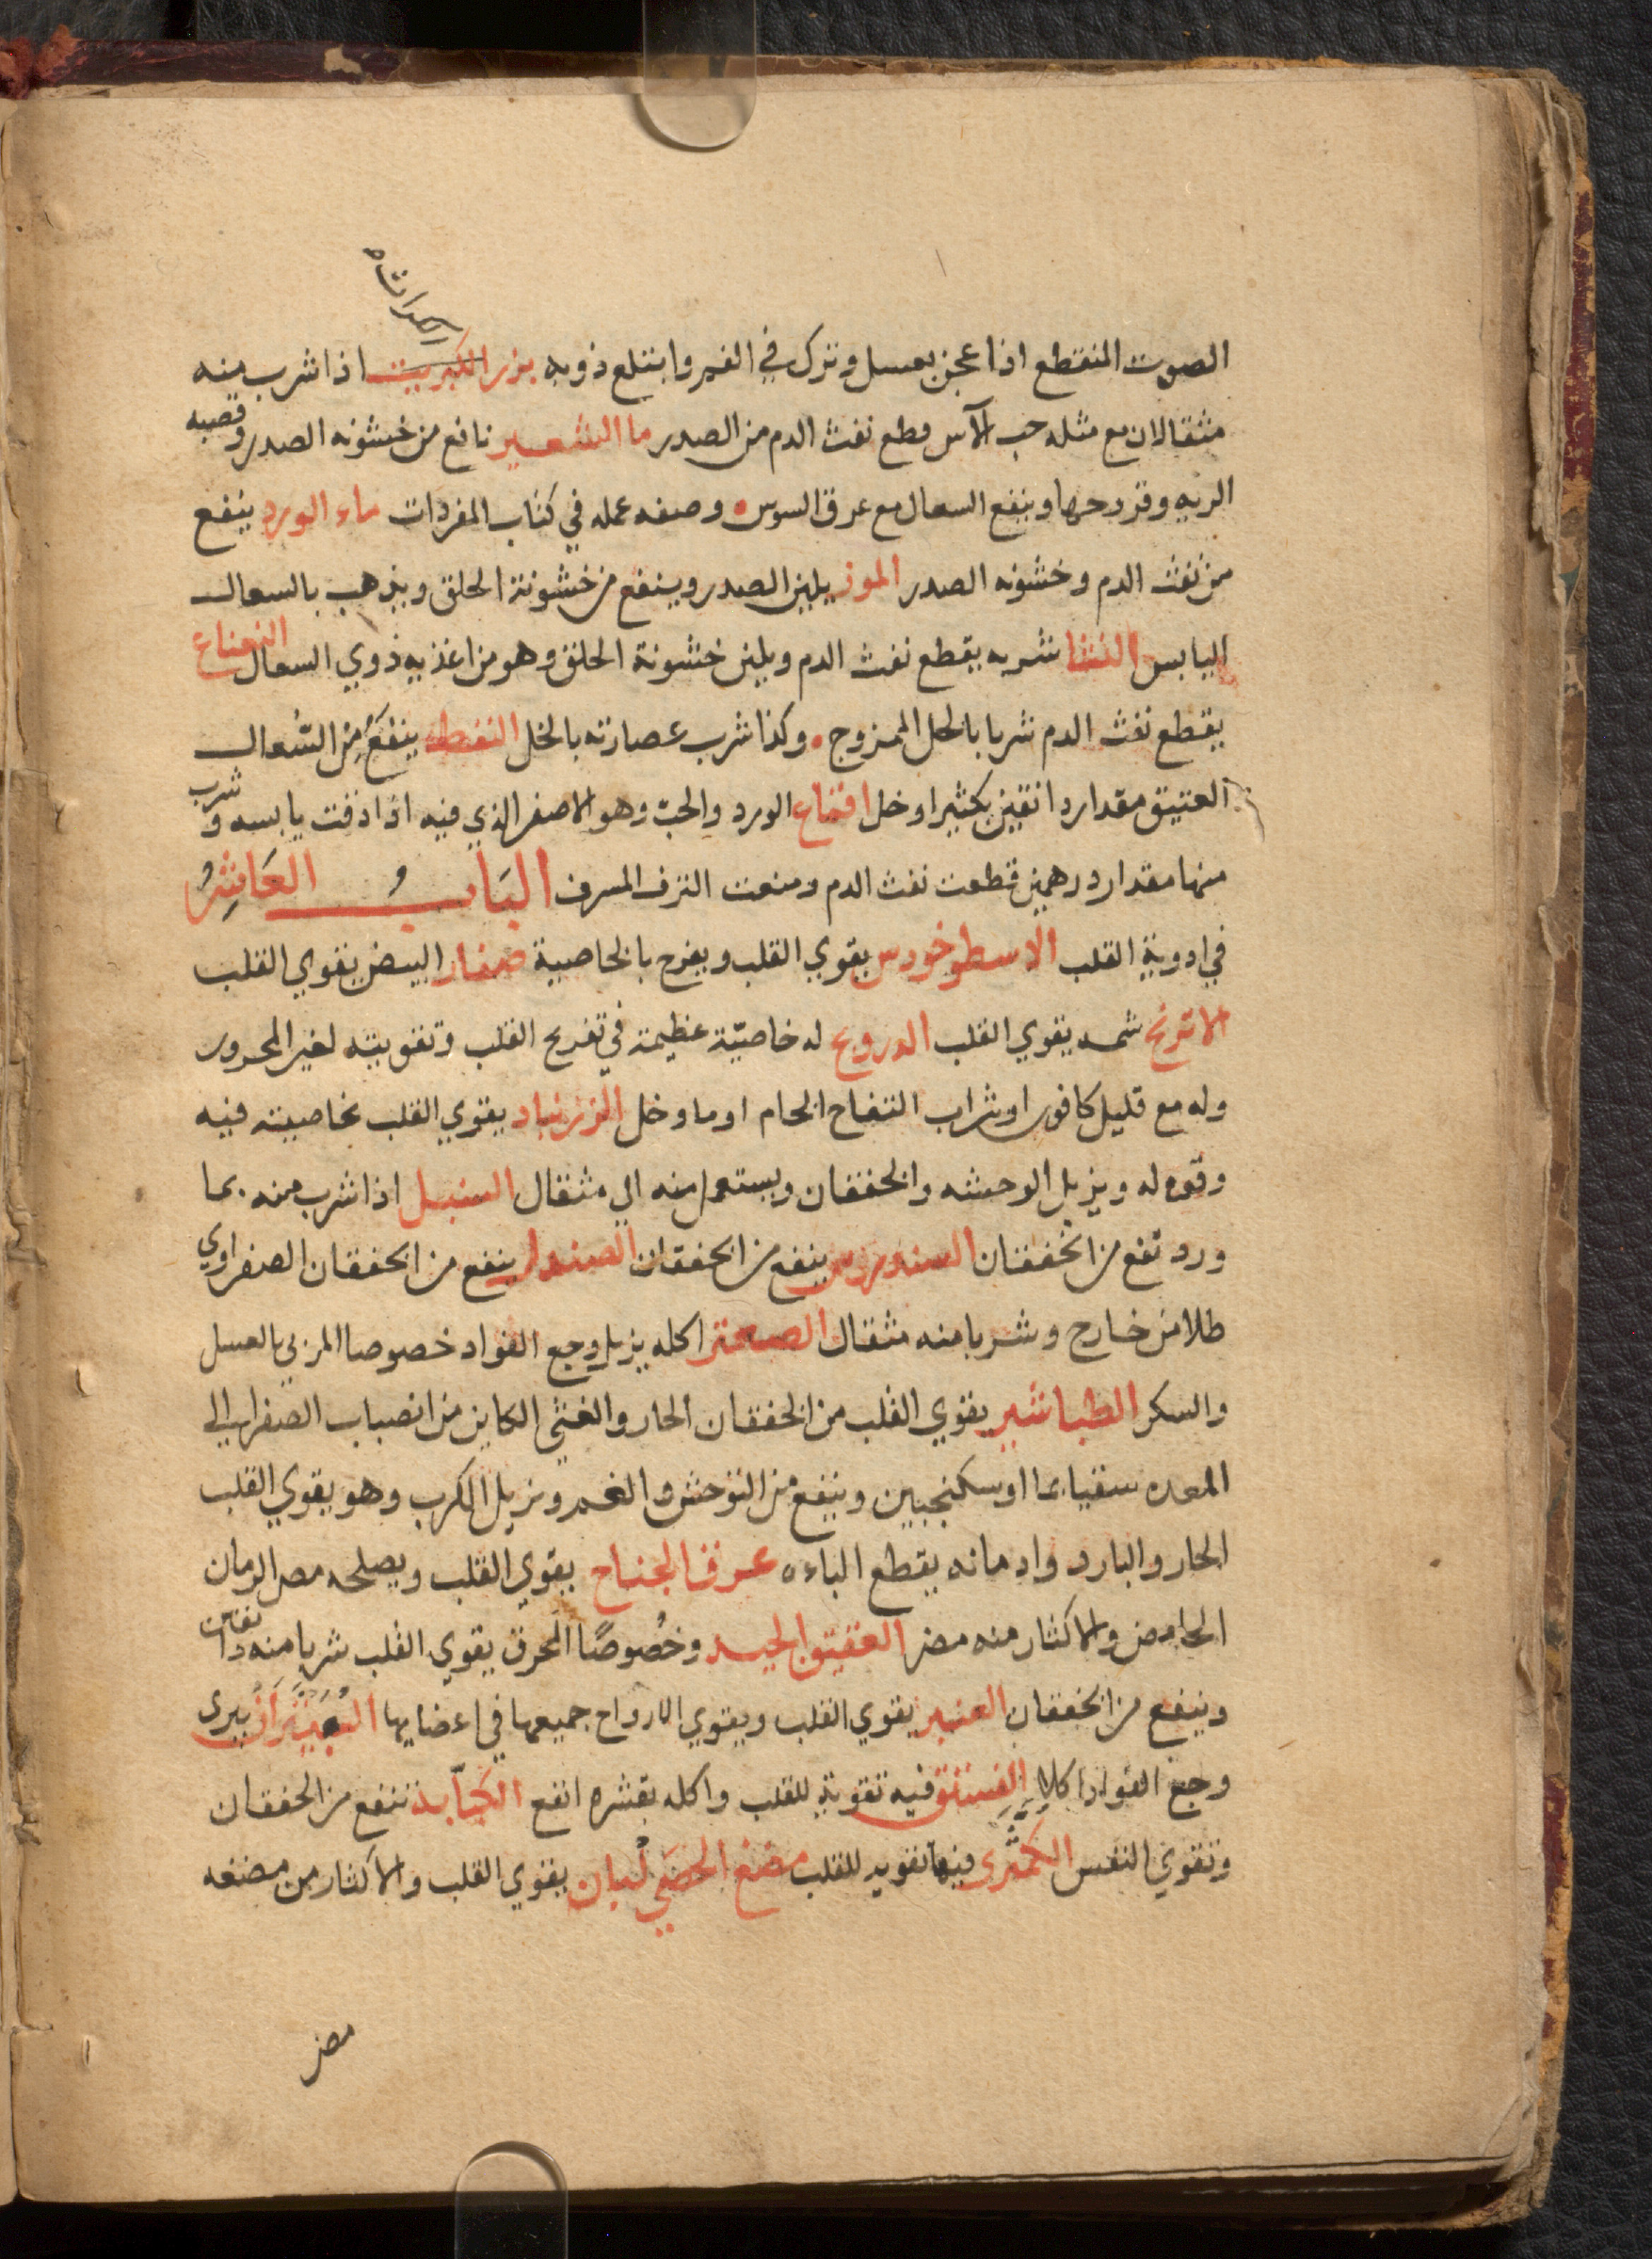 الكراث
الصوت المنقطع اذا عجن بعسل وترك في الفم وابتلع ذوبه بزر الكبريت اذا شرب منه
مثقالان مع مثله حب الآس قطع نفث الدم من الصدر ما الشعير نافع من خشونه الصدر وقصبه
الريه وقروحها وينفع السعال مع عرق السوس وصفه عمله في كتاب المفردات ماء الورد ينفع
من نفث الدم وخشونه الصدر الموز يلين الصدر وينفع من خشونة الحلق ويذهب بالسعال
اليابس النشا شربه يقطع نفث الدم ويلين خشونة الحلق وهو من اغذيه ذوي السعال النعناع
يقطع نفث الدم شربا بالخل الممزوج وكذا شرب عصارته بالخل النفط ينفع من السعال
العتيق مقدار دانقين بكثيرا وخل اقماع الورد والحب وهو الاصفر الذي فيه اذا دقت يابسه وشرب
منها مقدار درهمين قطعت نفث الدم ومنعت النزف المسرف الباب العاشر
في ادوية القلب الاسطوخودس يقوي القلب ويفرح بالخاصية صفار البيض يقوي القلب
الاترنج شمه يقوي القلب الدرونج له خاصيّة عظيمة في تفريح القلب وتقويته لغير المحرور
وله مع قليل كافور او شراب التفاح الخام او ما وخل الزرنباد يقوي القلب بخاصيته فيه
وقوه له ويزيل الوحشه والخفقان ويستعمل منه الي مثقال السنبل اذا شرب منه بما
ورد نفع من الخفقان السندروس ينفع من الخفقان الصندل ينفع من الخفقان الصفراوي
طلا من خارج وشربا منه مثقال الصعتر اكله يزيل وجع الفواد خصوصا المربي بالعسل
والسكر الطباشير يقوي القلب من الخفقان الحار والغشي الكاين من انصباب الصفرا الي
المعده سقيا بما او سكنجبين وينفع من التوحش والغم ويزيل الكرب وهو يقوي القلب
الحار والبارد وادمانه يقطع الباءه عرق الجناح يقوي القلب ويصلحه مص الرمان
الحامض والاكثار منه مضر العقيق الجيد وخصوصًا المحرق يقوي القلب شربا منه دانقان
وينفع من الخفقان العنبر يقوي القلب ويقوي الارواح جميعها في اعضايها العبيثران يبري
وجع الفواد اكلا الفستق فيه تقوية للقلب واكله بقشره انفع الكبّابة تنفع من الخفقان
وتقوي النفس الكمّثرى فيها تقويه للقلب مضغ الحصى لبان يقوي القلب والاكثار من مضغه
مضر